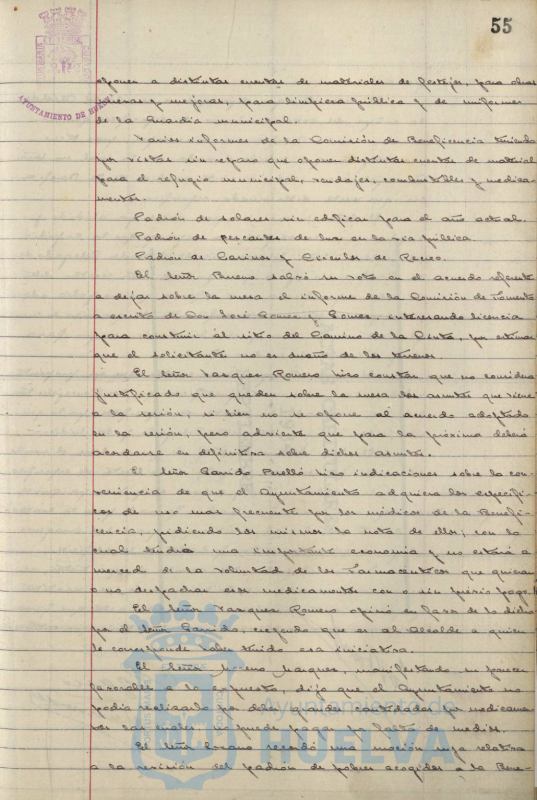 55
AYUNTAMIENTO DE HUELVA
oponen a distintas cuentas de materiales de festejos, para obras
nuevas y mejoras, para limpieza pública y de uniformes
de la Guardia municipal.
Varios informes de la Comisión de Beneficencia teniendo
por vistas sin reparo que oponen distintas cuentas de material
para el refugio municipal, vendajes, combustibles y medica-
mentos.
Padrón de solares sin edificar para el año actual.
Padrón de pescantes de luz en la vía pública.
Padrón de Casinos y Círculos de Recreo.
El Señor Bueno salvó su voto en el acuerdo referente
a dejar sobre la mesa el informe de la Comisión de Fomento
a escrito de Don José Gomez y Gomez, interesando licencia
para construir al sitio del Camino de la Cinta, por estimar
que el solicitante no es dueño de los terrenos.
El Señor Vazquez Romero hizo constar que no considera
justificado que queden sobre la mesa los asuntos que viene
a la sesión, si bien no se opone al acuerdo adoptado
en la sesión, pero advierte que para la próxima deberá
acordarse en definitiva sobre dichos asuntos.
El Señor Garrido Perelló hizo indicaciones sobre la con-
veniencia de que el Ayuntamiento adquiera los específi-
cos de uso mas frecuente por los médicos de la Benefi-
cencia, pidiendo los mismos la nota de ellos; con lo
cual tendría una importante economía y no estará a
merced de la voluntad de los Farmaceuticos que quieran
o no despachar esos medicamentos con o sin previo pago.
El Señor Vazquez Romero opinó en favor de lo dicho
por el Señor Garrido, creyendo que es al Alcalde a quien
le corresponde haber tenido esa iniciativa.
El Señor Moreno Marquez, manifestando su parecer
favorable a lo expuesto, dijo que el Ayuntamiento no
podía realizarlo por deber grandes cantidades por medicamen-
tos las cuales no puede pagar por falta de medios.
El Señor Lozano recordó una moción suya relativa
a la revisión del padrón de pobres acogidos a la Bene-
Ayuntamiento de
HUELVA